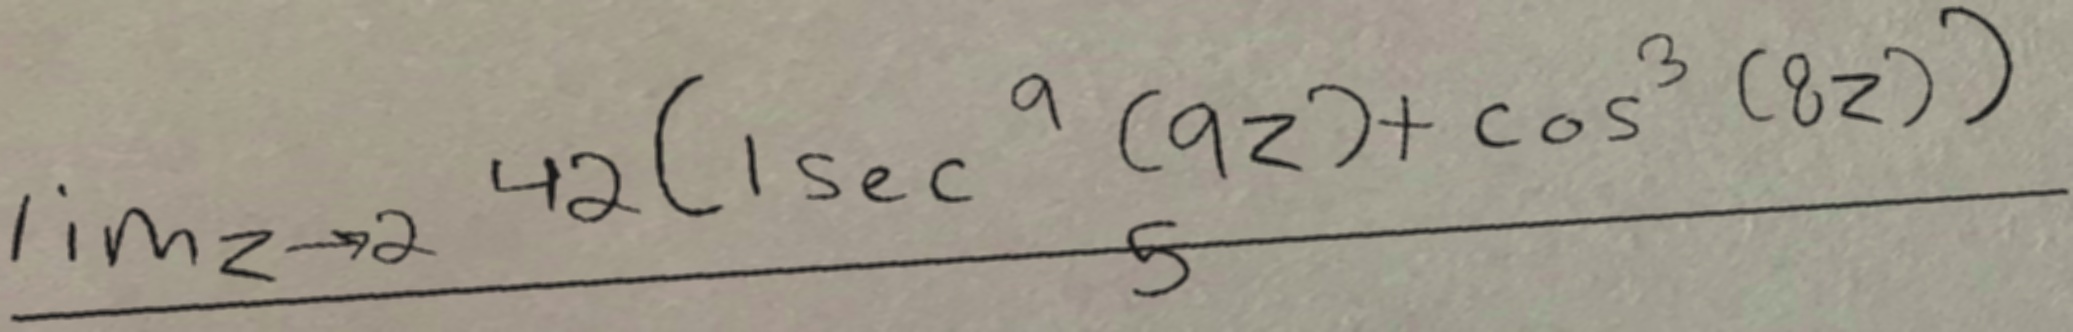 lim z→2 42(1 sec⁹ (9z) + cos³ (8z))
5